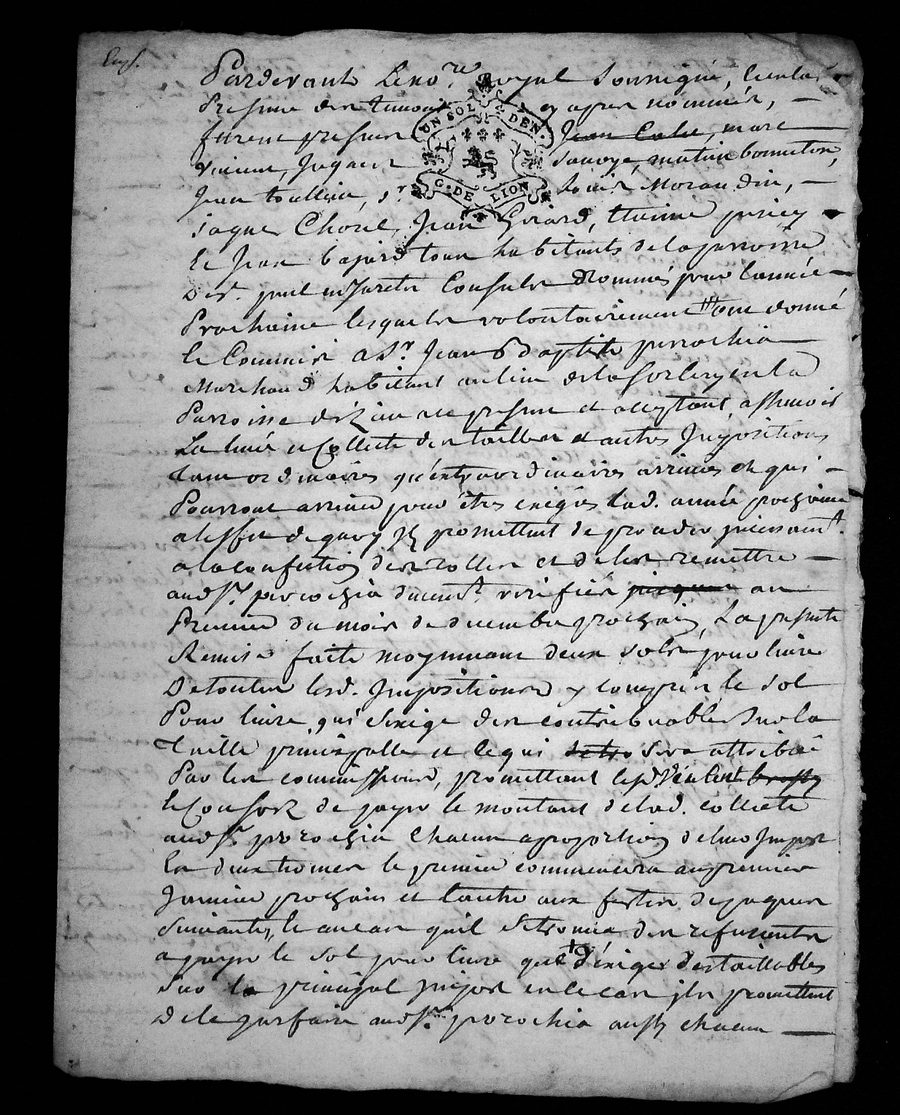 Pardevant Le no.re Royal soussigné, & en la
Presence des temoins cy apres nommés, —
furent presents Jean marc
UN SOL DEN.
G. DE LION
Vincent, Jacques Savoye, matieu bonneton,
Jean Louis Morandin, —
Jaques Chorel, Jean Girard, Etienne
& Jean bajard tous habitants de la parroisse
De St. paul Consuls Nommés pour l'année
Prochaine lesquels volontairement ont donné
& Commis a Sr. Jean Baptiste perrochia
Marchand habitant au lieu de la en la
Parroisse d'izieu icy present et acceptant, asscavoir
La levée & Collecte des tailles et autres Impositions
tant ordinaires qu'extraordinaires arrivées et qui —
Pourront arriver pour être exigés lad. année prochaine
a l'effet de quoy Ils promettent de proceder incessamt.
a la confection des rolles et de les remettre —
aud. Sr. perrochia duemt. verifiés jusques au
Premier du mois de decembre prochain, La presente
Remise faite moyennant deux sols pour livre
De toutes lesd. Impositions y compris le sol
Pour livre qui s'exige des contribuables sur la
Taille principalle et ce qui sera attribué
Par les commissions, promettant
& Consorts de payer le montant de lad. collecte
aud. Sr. perochia chacun a proportion de leur Impost
En deux termes le premier commencera au premier
Janvier prochain et l'autre aux festes de paques
Suivantes, & au cas qu'il se trouva des refusants
a payer le sol pour livre d'exiger des taillables
Sur le principal impost en ce cas ils promettent
De le parfaire aud. Sr. perochia aussy chacun —